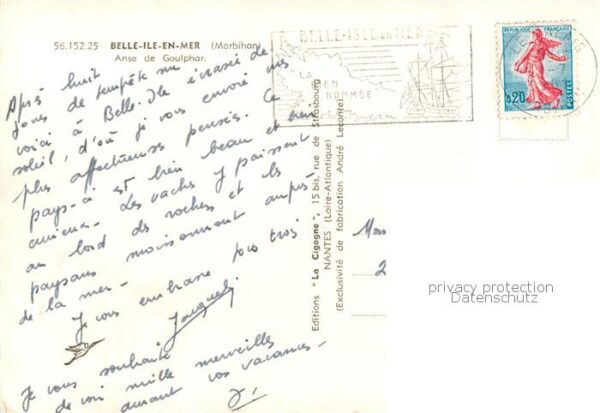 56.152.25 BELLE-ILE-EN-MER (Morbihan)
Anse de Goulphar.
BELLE-ISLE EN MER
"LA
BIEN
NOMMÉE
RÉPUBLIQUE FRANÇAISE
0,20
POSTES
Après huit
jours de tempête me
voici à Belle-Ile écrasée de
soleil, d'où je vous envoie mes
plus affectueuses pensées. Ce
pays-ci est bien beau et bien
curieux. Les vaches y paissent
au bord des roches et les
paysans moissonnent auprès
de la mer -
Je vous embrasse tous trois
Jacqueline
Je vous souhaite
de voir mille merveilles
durant vos vacances -
J.
Editions "La Cigogne", 15 bis, rue de Strasbourg
NANTES (Loire-Atlantique)
(Exclusivité de fabrication André Leconte)
2
privacy protection
Datenschutz